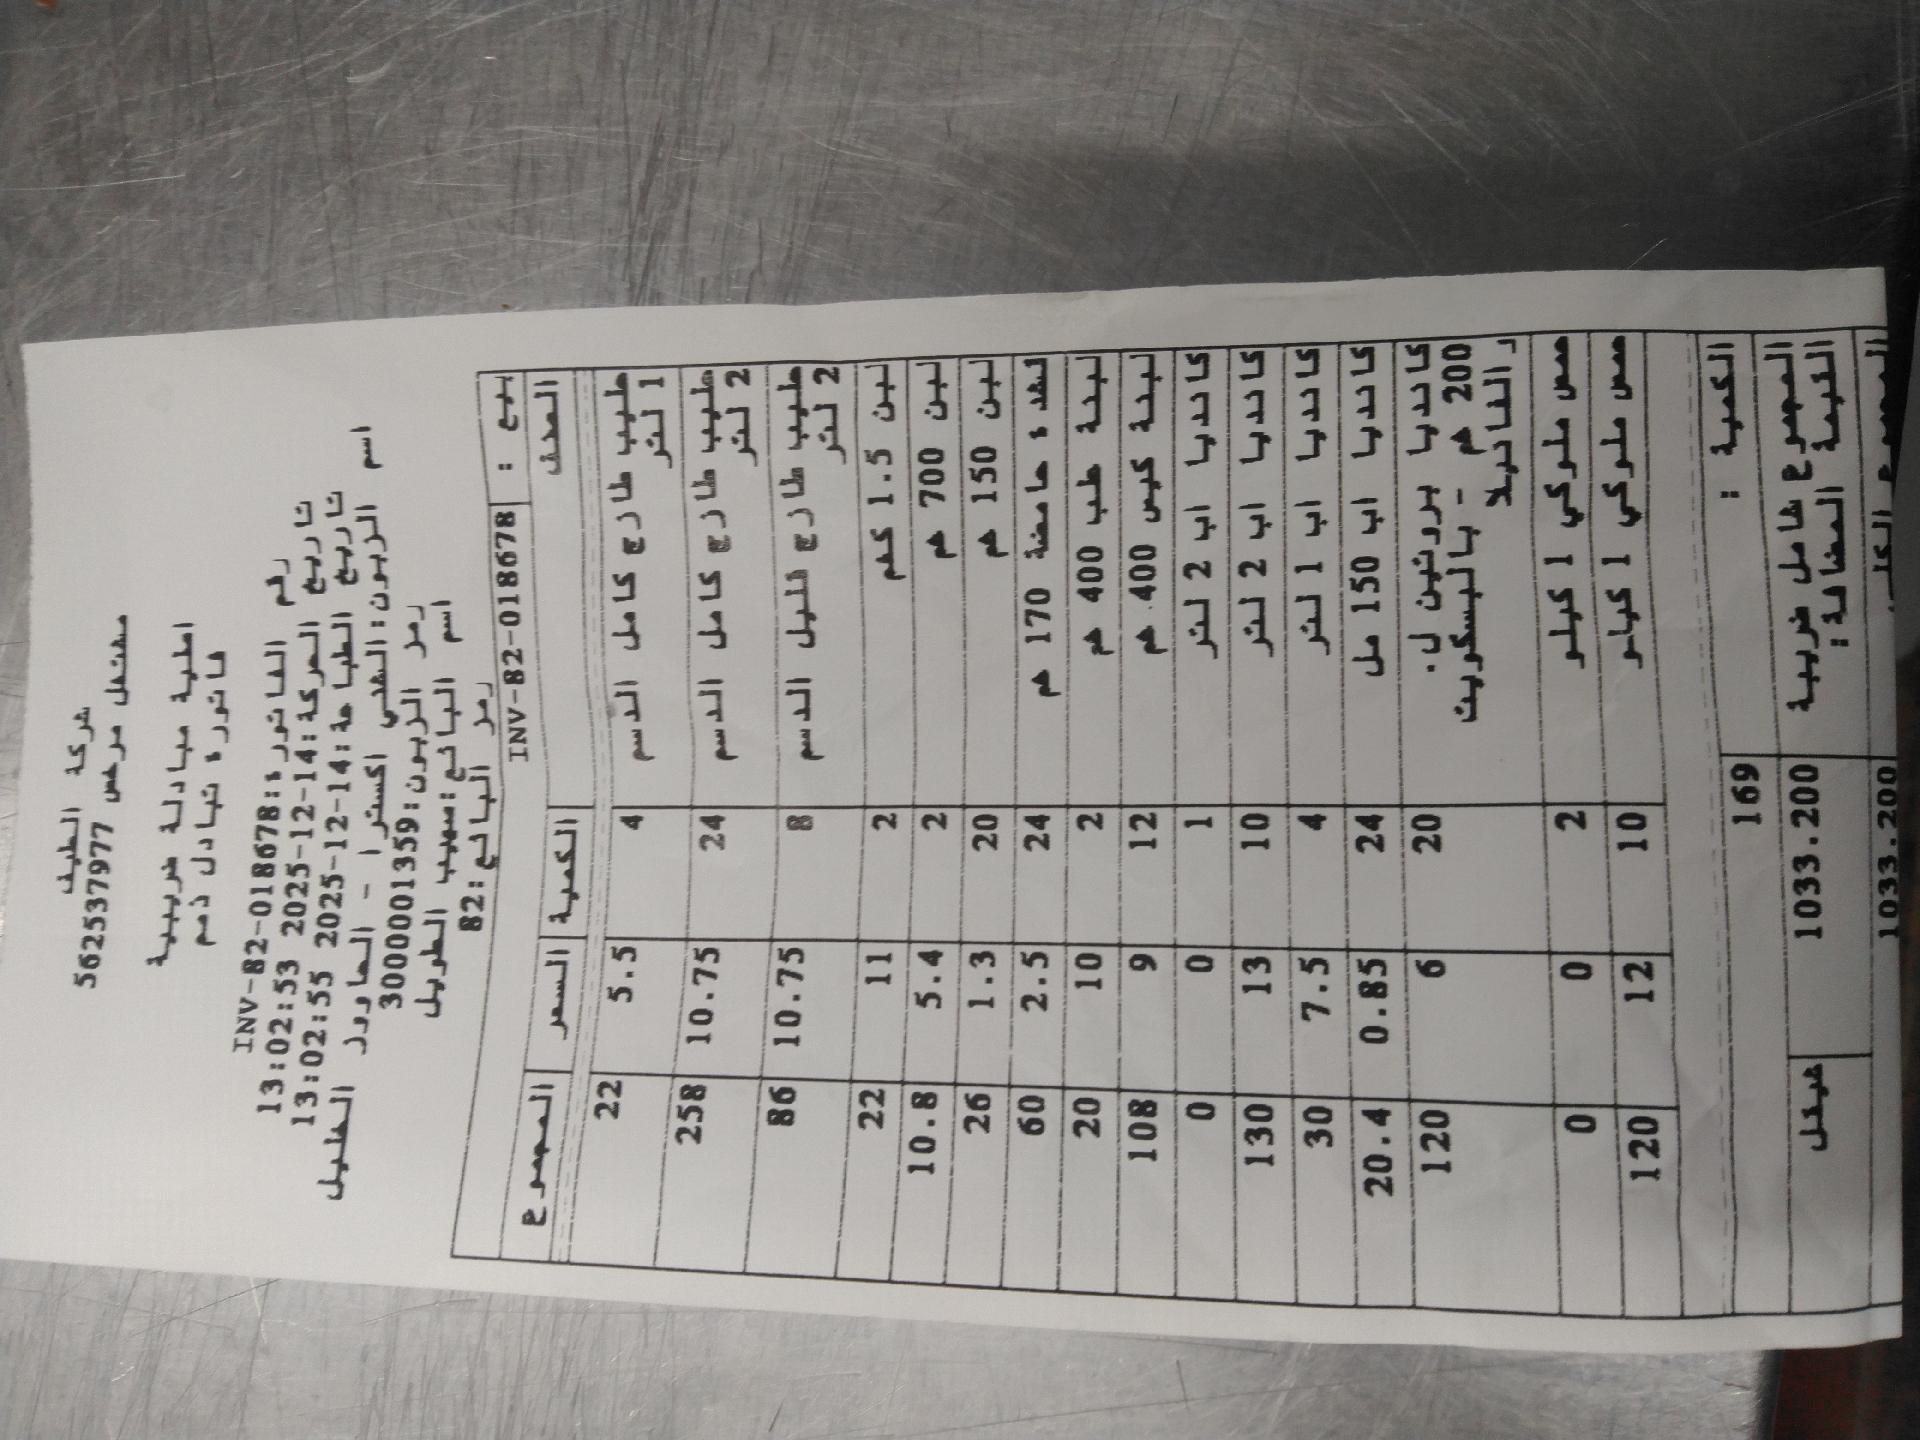 شركة الطيف
مشتغل مرخص 562537977
اصلية مبادلة ضريبية
فاتورة تبادل ذمم
رقم الفاتورة: INV-82-018678
تاريخ الحركة: 2025-12-14 13:02:53
تاريخ الطباعة: 2025-12-14 13:02:55
اسم الزبون: القدي اكسترا - الحاووز الخليل
رمز الزبون: 3000001359
اسم البائع: صهيب الطويل
رمز البائع: 82
بيع : INV-82-018678
الصنف الكمية السعر المجموع
حليب طازج كامل الدسم 4 5.5 22
1 لتر
حليب طازج كامل الدسم 24 10.75 258
2 لتر
حليب طازج قليل الدسم 8 10.75 86
2 لتر
لبن 1.5 كغم 2 11 22
لبن 700 غم 2 5.4 10.8
لبن 150 غم 20 1.3 26
قشدة حامضة 170 غم 24 2.5 60
لبنة علب 400 غم 2 10 20
لبنة كيس 400 غم 12 9 108
كانديا اب 2 لتر 1 0 0
كانديا اب 2 لتر 10 13 130
كانديا اب 1 لتر 4 7.5 30
كانديا اب 150 مل 24 0.85 20.4
كانديا بروتين ل. 20 6 120
200 غم - بالبسكويت
ر الفانيلا
حمص ملوكي 1 كيلو 2 0 0
حمص ملوكي 1 كيلو 10 12 120
الكمية : 169
المجموع شامل ضريبة 1033.200 شيقل
القيمة المضافة:
المجموع الكلي 1033.200